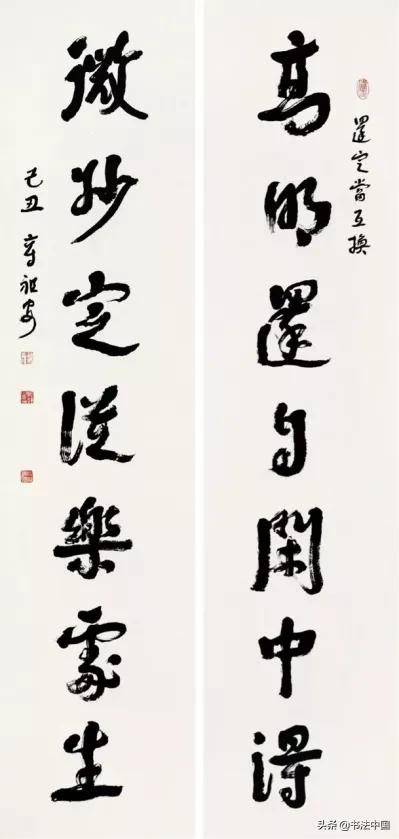 高明還自閑中得
還定當互換
微妙定從樂處生
己丑 章祖安
头条 @书法中国